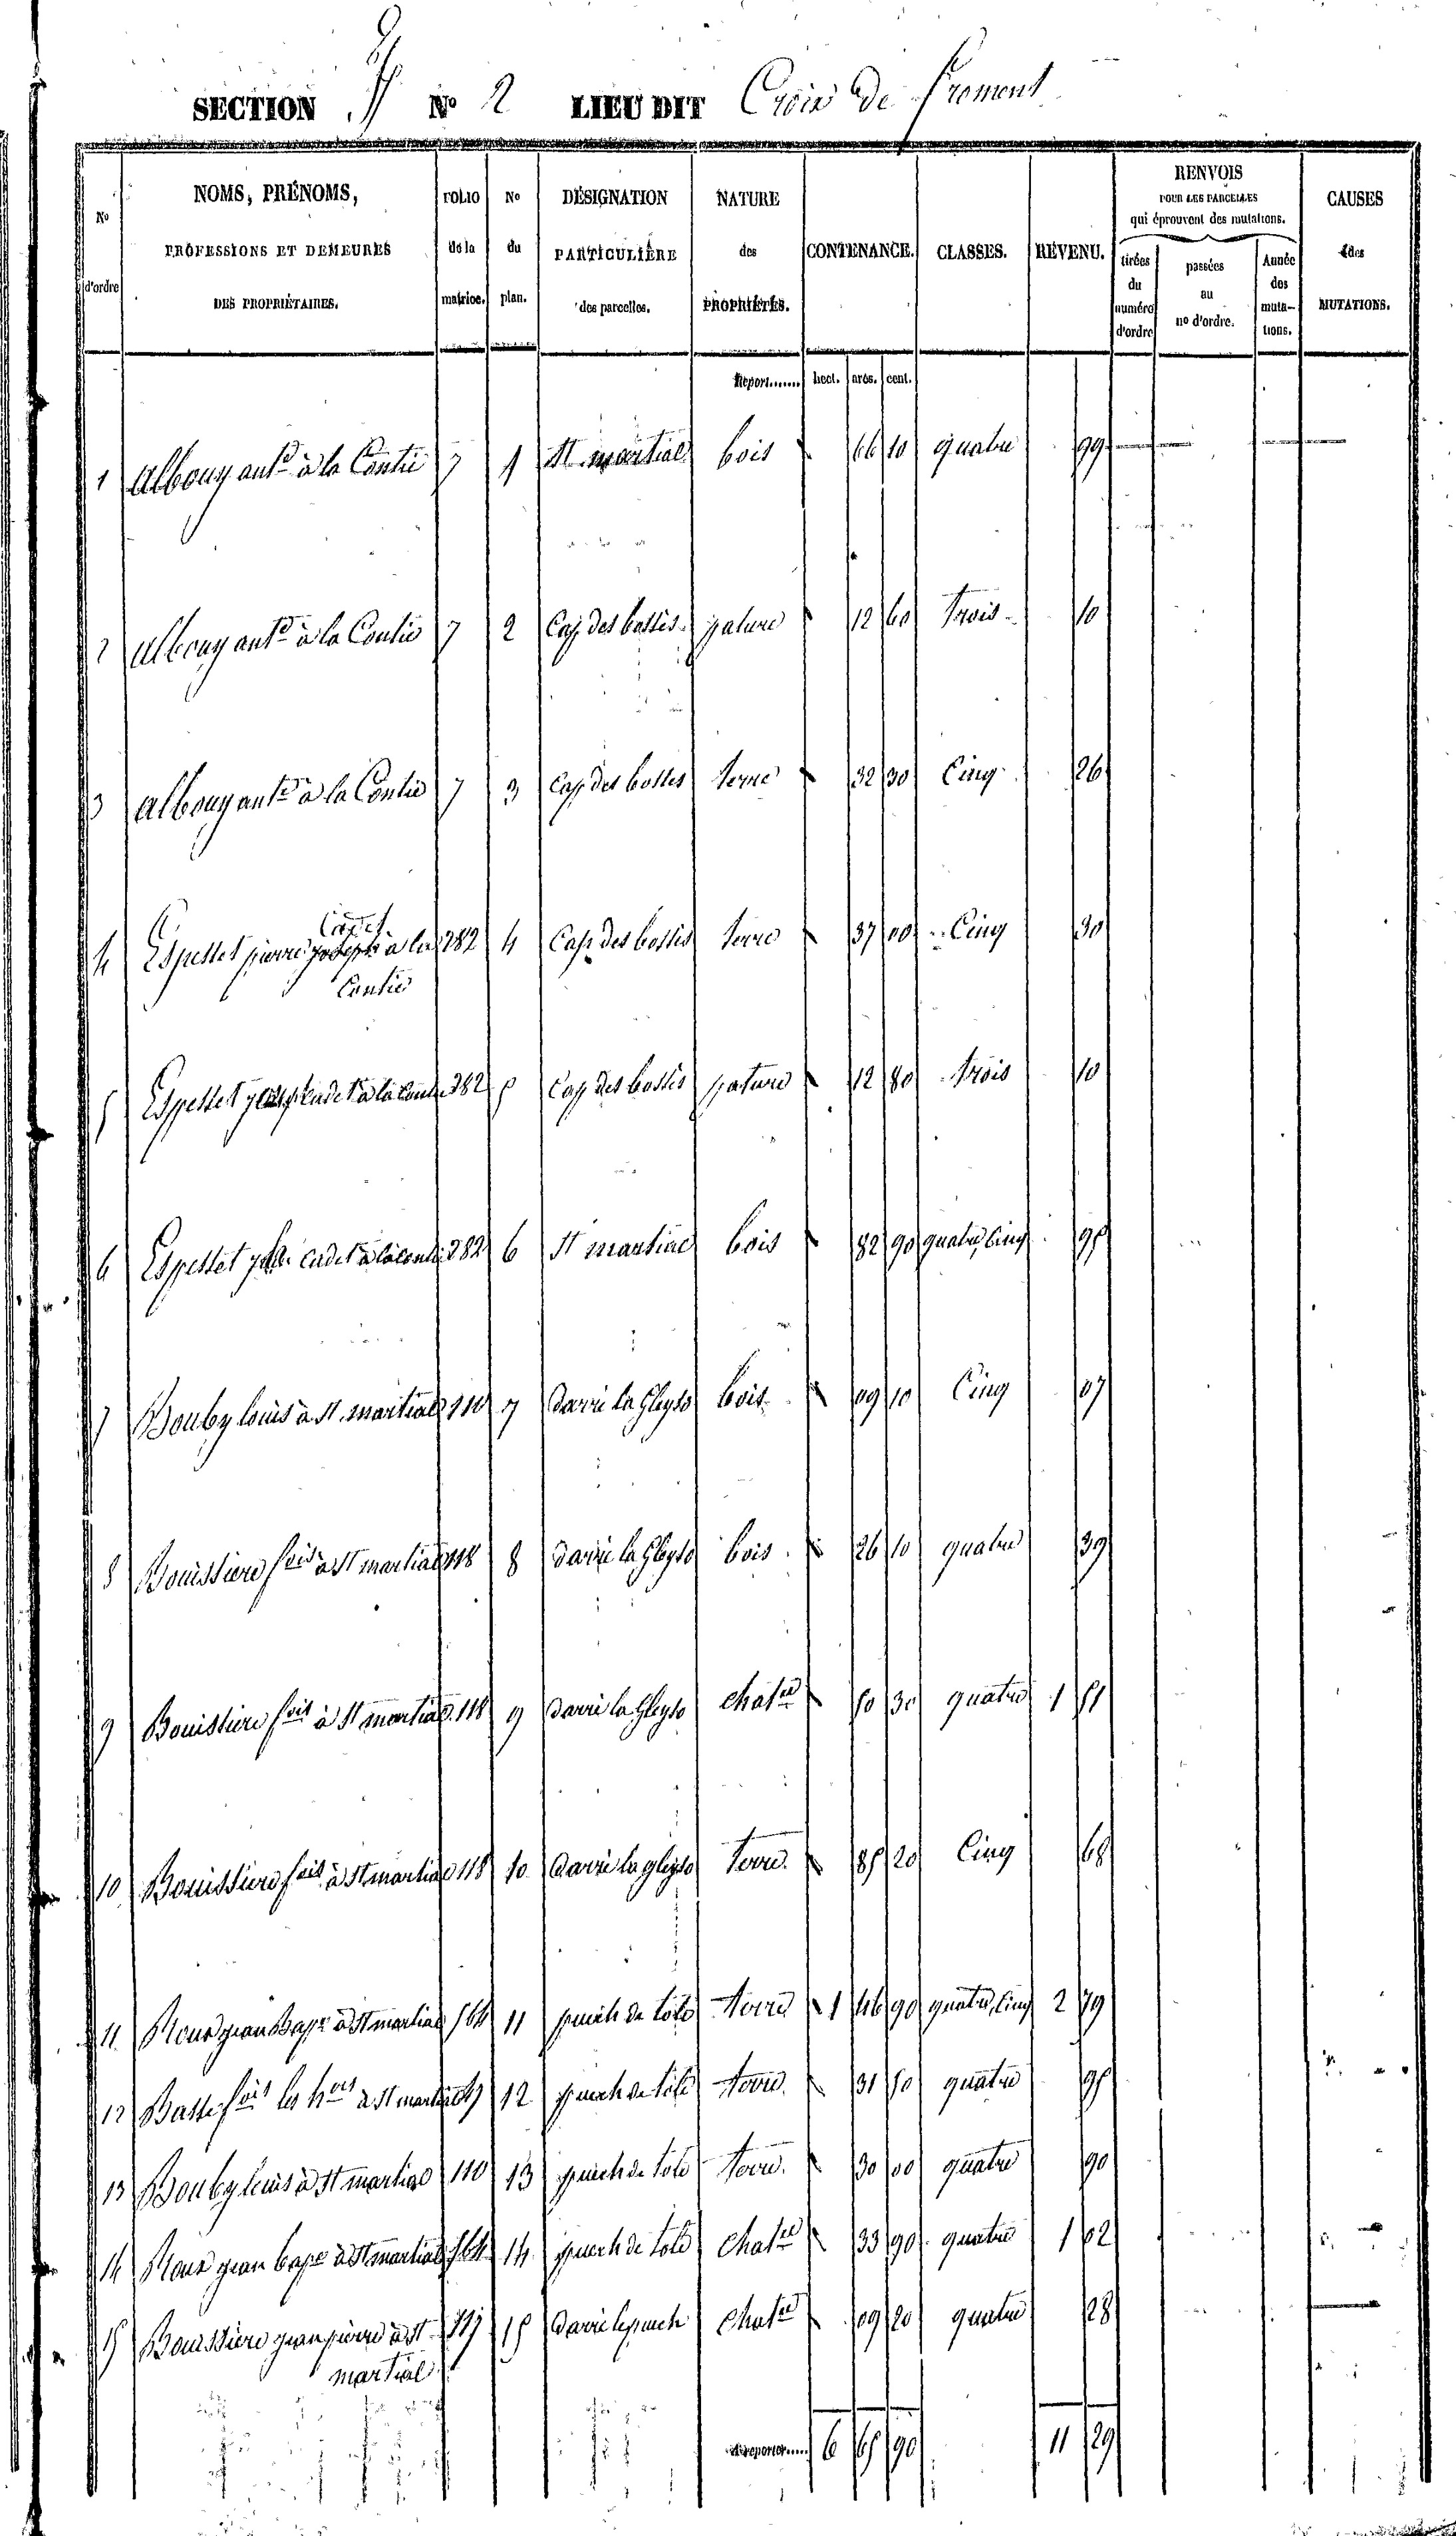 SECTION N° 2 LIEU DIT Croix de froment
N° d'ordre
NOMS, PRÉNOMS, PROFESSIONS ET DEMEURES DES PROPRIÉTAIRES.
FOLIO de la matrice.
N° du plan.
DÉSIGNATION PARTICULIÈRE des parcelles.
NATURE des PROPRIÉTÉS.
CONTENANCE.
CLASSES.
REVENU.
RENVOIS POUR LES PARCELLES qui éprouvent des mutations.
tirées du numéro d'ordre
passées au n° d'ordre.
Année des muta-tions.
CAUSES des MUTATIONS.
Report....... hect. ares. cent.
1 Albouy ant.e à la Contie 7 1 St martial bois 66 10 quatre 99
2 Albouy ant.e à la Contie 7 2 Cap des bosses pature 12 60 trois 10
3 Albouy ant.e à la Contie 7 3 Cap des bosses terre 32 30 Cinq 26
Cadet
4 Espesset pierre à la 282 4 Cap des bosses terre 37 00 Cinq 30
Contie
5 Espesset cadet à la Contie 282 5 Cap des bosses pature 12 80 trois 10
6 Espesset cadet à la Contie 282 6 St martial bois 82 90 quatre, Cinq 95
7 Bouby louis à St martial 110 7 darrè la Gleyso bois 09 10 Cinq 07
8 Bouissiere fois à St martial 118 8 darrè la Gleyso bois 26 10 quatre 39
9 Bouissiere fois à St martial 118 9 darrè la Gleyso chat.ie 50 30 quatre 1 51
10 Bouissiere fois à St martial 118 10 darrè la gleyso terre 85 20 Cinq 68
11 Roux jean Bap.e à St martial 564 11 puech de tolo terre 1 46 90 quatre, Cinq 2 79
12 Basse fois les h.ers à St martial 12 puech de tolo terre 31 50 quatre 95
13 Bouby louis à St martial 110 13 puech de tolo terre 30 00 quatre 90
14 Roux jean bap.e à St martial 564 14 puech de tolo chat.ie 33 90 quatre 1 02
15 Bouissiere jean pierre à St 117 15 darrè le puech chat.ie 09 20 quatre 28
martial
A reporter..... 6 65 90 11 29